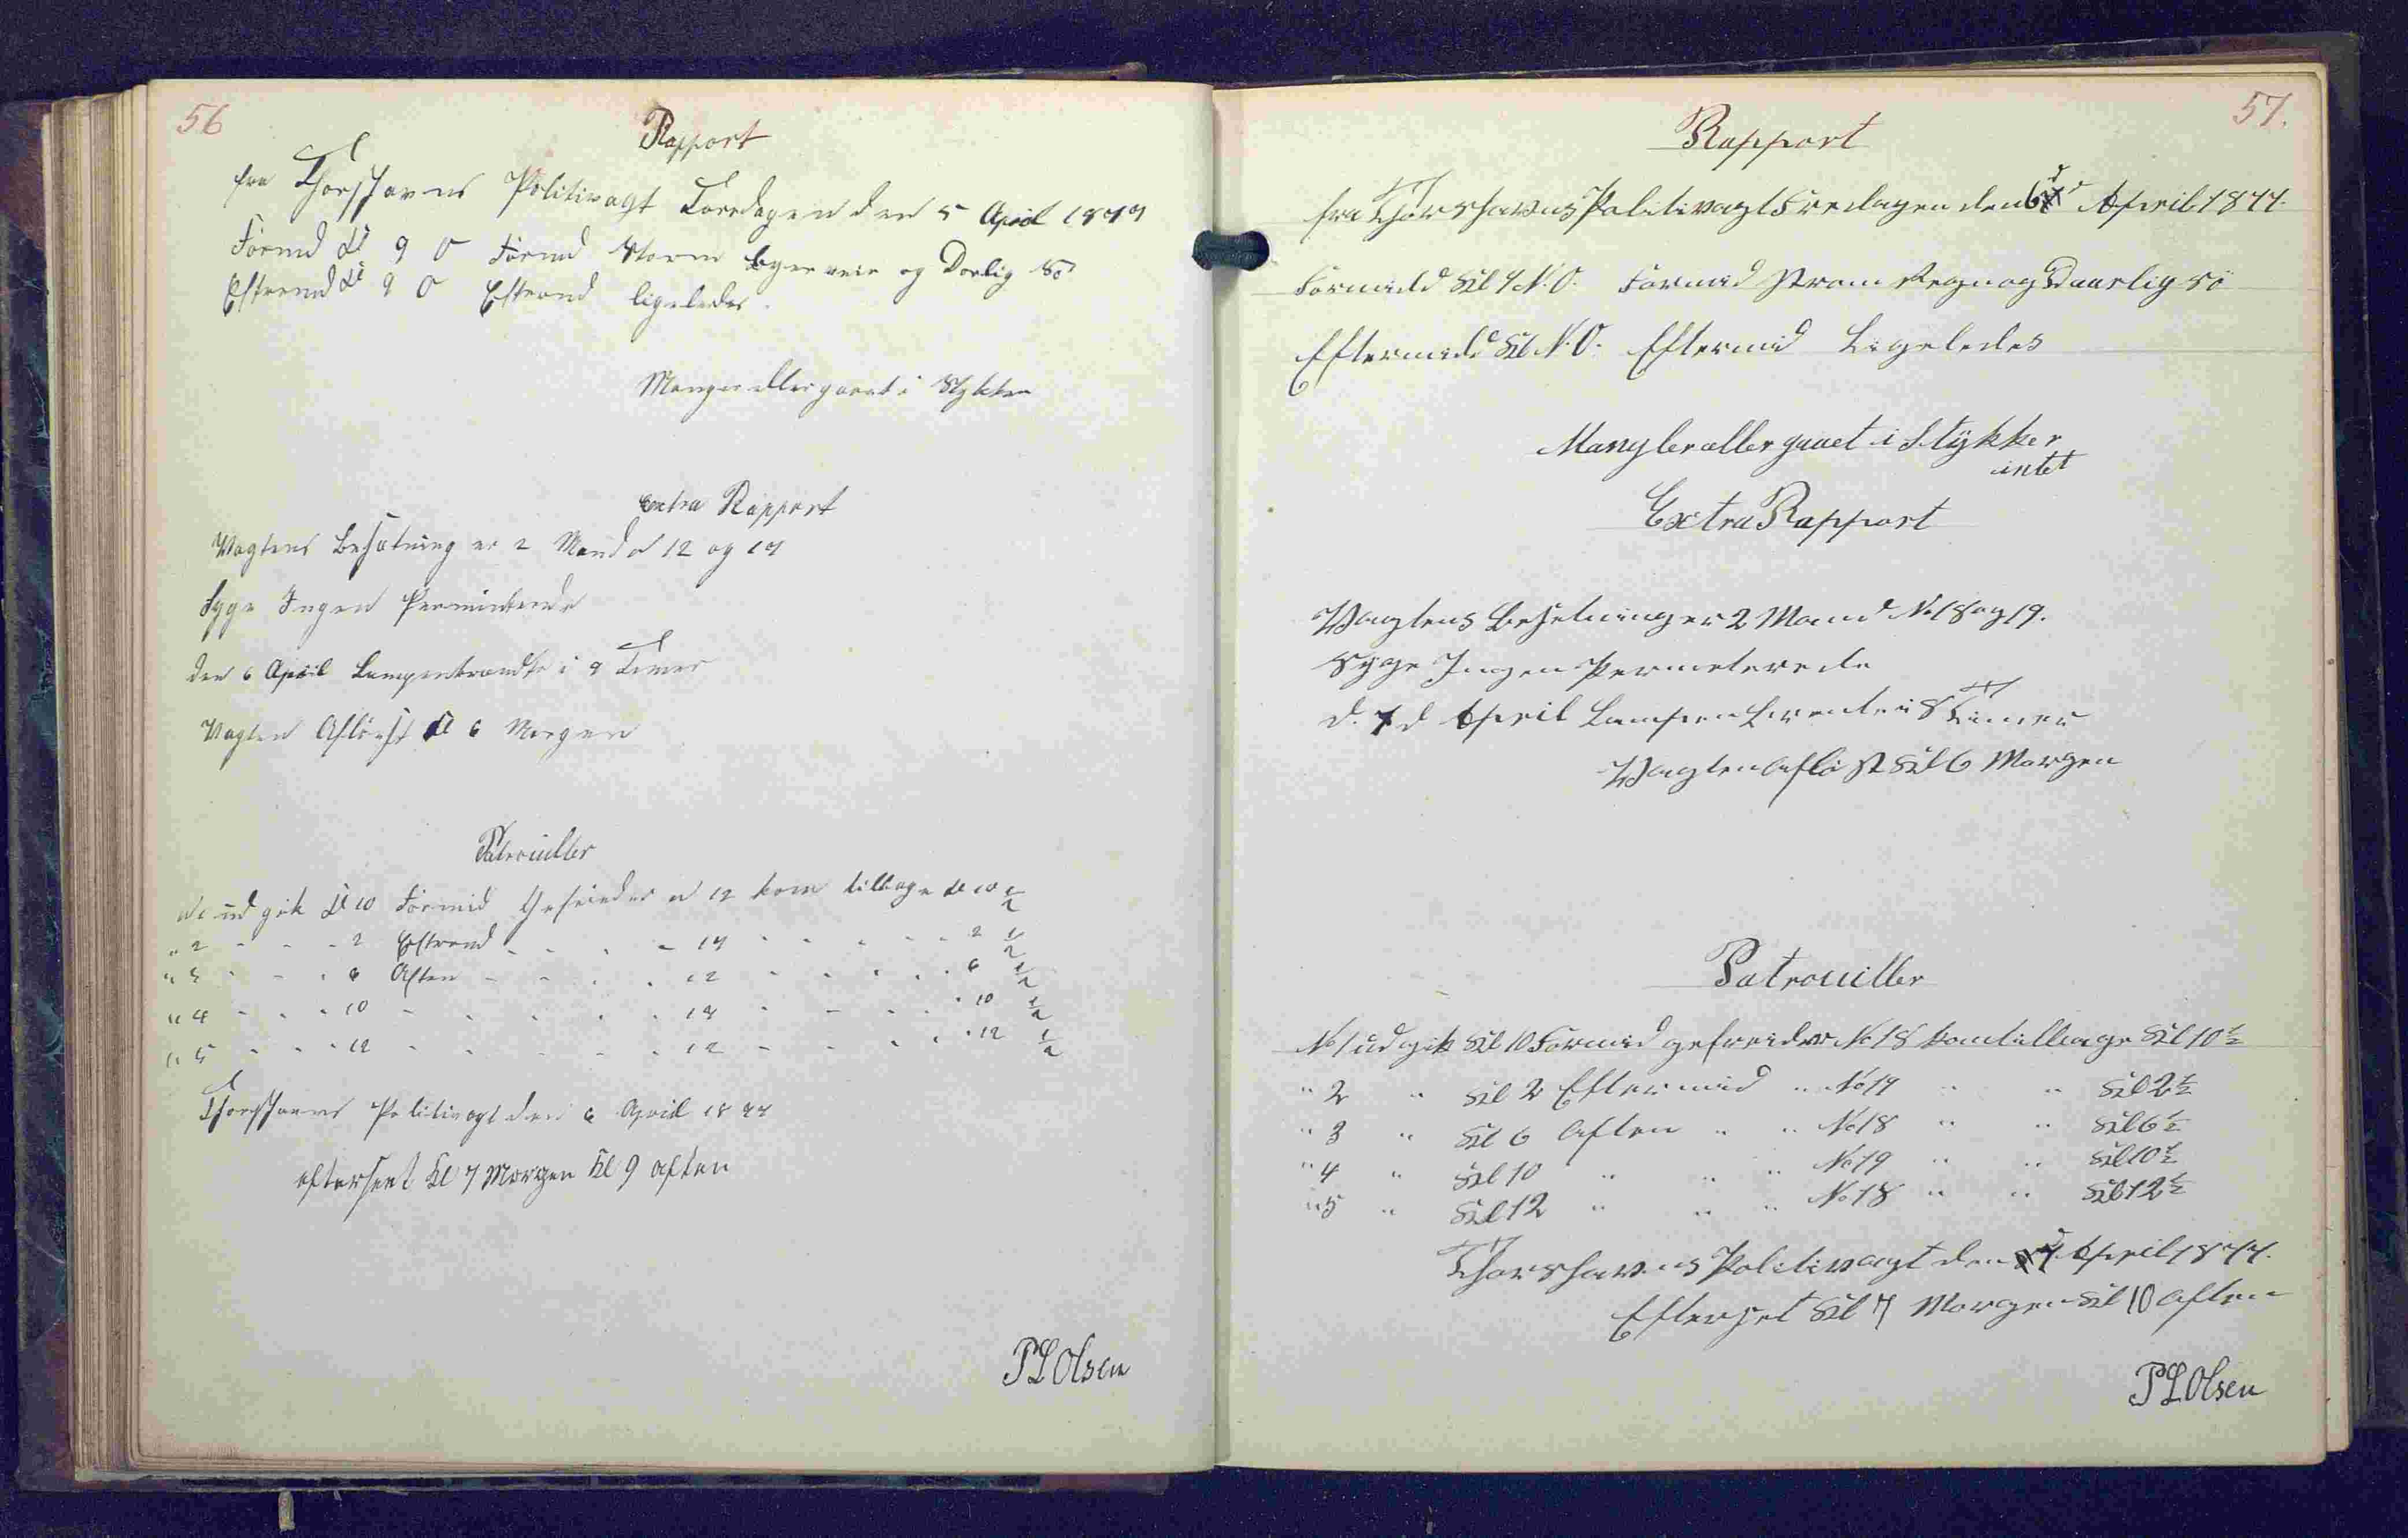 56
Rapport
fra Thorshavns Politivagt Torsdagen den 5 April 1877
Formd Kl 9 O Formd Storm Bygeveir og Dorlig Sø
Eftermd Kl 9 O Eftermd ligeledes.
Manger eller gaaet i Stykker
Extra Rapport
Vagtens Besætning er 2 Mand № 12 og 17
Syge Ingen Permiterede
den 6 April Lampen brændte i 9 Timer
Vagten Afløst Kl 6 Morgen
Patrouiller
№ 1 udgik Kl 10 Formid Gefreider № 12 kom tilbage Kl 10 1/2
" 2 - - - 2 Eftermd - - - - 17 - - - - - 2 1/2
" 3 - - - 6 Aften - - - - 12 - - - - - 6 1/2
" 4 - - - 10 - - - - - 17 - - - - - 10 1/2
" 5 - - - 12 - - - - - 12 - - - - - 12 1/2
Thorshavns Politivagt den 6 April 1877
efterseet Kl 7 Morgen Kl 9 aften
P L Olsen
57.
Rapport
fra Thorshavns Politivagt Fredagen den 6 April 1877.
Formidd Kl 9 N.O. Formid Strom Regn og Daarlig Sö
Eftermidd Kl N.O. Eftermid Ligeledes
Mangler eller gaaet i Stykker
intet
Extra Rapport
Vagtens Besetning er 2 Mand № 18 og 19.
Syge Ingen Permeterede
d. 7d April Lampen brente i 8 Timer
Vagten Afløst Kl 6 Morgen
Patrouiller
№ 1 udgik Kl 10 Formid gefreider № 18 kom tilbage Kl 10 1/2
" 2 " Kl 2 Eftermid " № 19 " " Kl 2 1/2
" 3 " Kl 6 Aften " " № 18 " " Kl 6 1/2
" 4 " Kl 10 " " " № 19 " " Kl 10 1/2
" 5 " Kl 12 " " " № 18 " " Kl 12 1/2
Thorshavns Politivagt den 7 April 1877.
Efterset Kl 7 Morgen Kl 10 Aften
P L Olsen